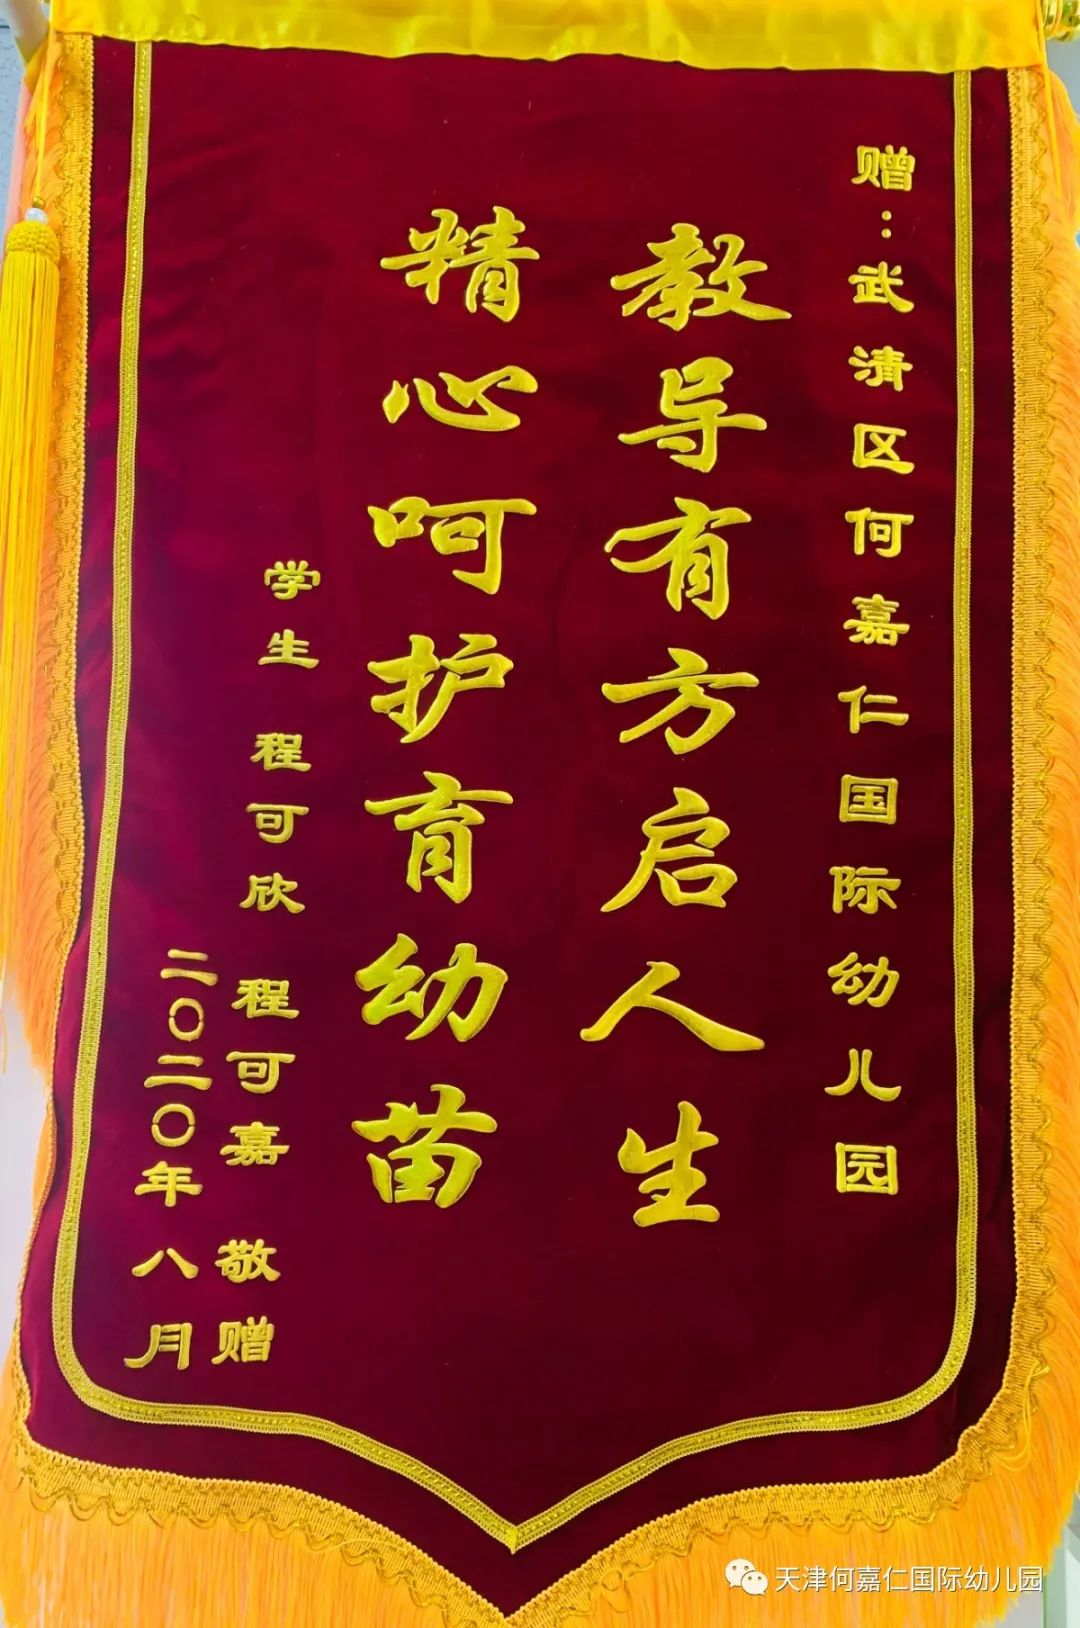 赠：武清区何嘉仁国际幼儿园
教导有方启人生
精心呵护育幼苗
学生 程可欣 程可嘉 敬赠
二〇二〇年八月
天津何嘉仁国际幼儿园